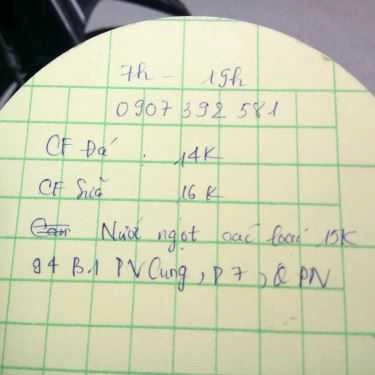 7h - 19h
0907 392 581
CF Đá . 14K
CF Sữa 16K
Nước ngọt các loại 15K
94 B.1 PV Cung, P7, Q PN